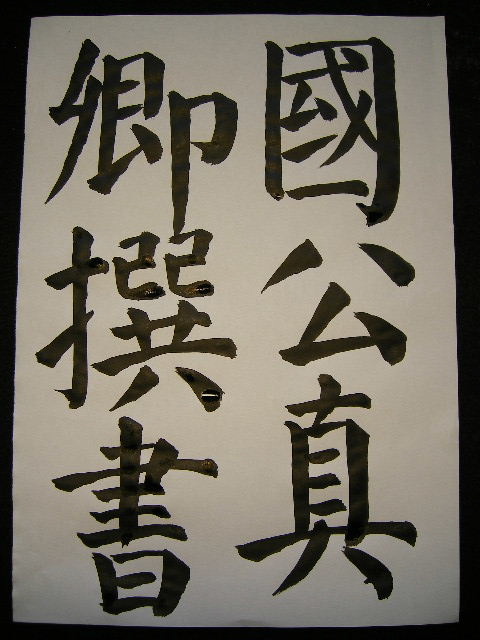 國公真
卿撰書